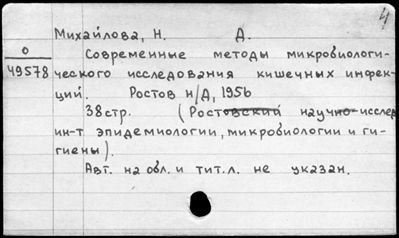 4
Михайлова, Н. А.
О
49578
Современные методы микробиологи-
ческого исследования кишечных инфек-
ций. Ростов н/Д, 1956
38стр. (Ростовский научно-исслед
ин-т эпидемиологии, микробиологии и ги-
гиены).
Авт. на обл. и тит. л. не указан.